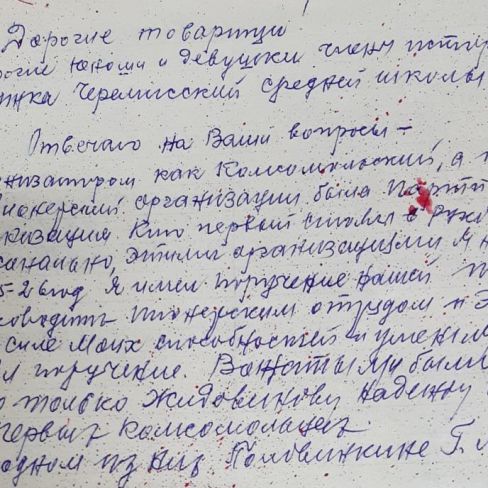 Дорогие товарищи
рогие юноши и девушки члены истор
Черемисский средней школы
Отвечаю на Ваши вопросы –
низатором как Комсомольский, а
ионерский организации была Парти
низация Кто первый стоял в Руко
этими организациями я н
5-26 год Я имел поручение нашей
ководить пионерским отрядом и
силе моих способностей и умений
л поручение. Вожатыми были
только Жидовинову Надежду
первых комсомольцев
одном из них Половинкине Г.